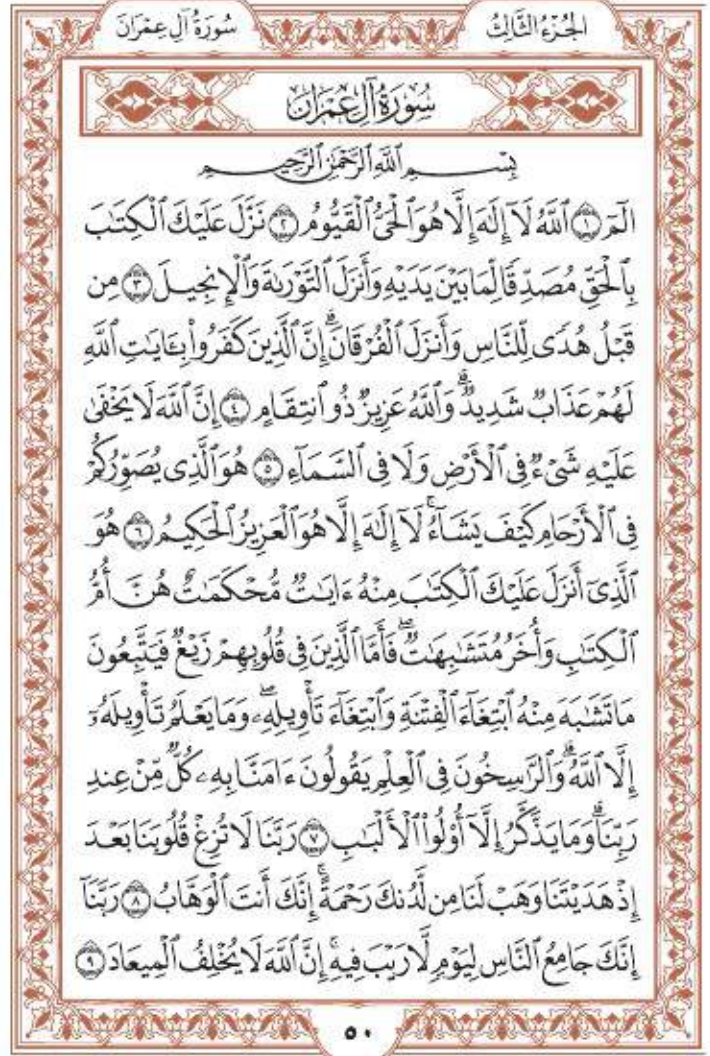 الجُزْءُ الثَّالِثُ سُورَةُ آلِ عِمْرَان
سُورَةُ آلِ عِمْرَان
بِسْمِ ٱللَّهِ ٱلرَّحْمَٰنِ ٱلرَّحِيمِ
الٓمٓ ١ ٱللَّهُ لَآ إِلَٰهَ إِلَّا هُوَ ٱلْحَىُّ ٱلْقَيُّومُ ٢ نَزَّلَ عَلَيْكَ ٱلْكِتَٰبَ
بِٱلْحَقِّ مُصَدِّقًا لِّمَا بَيْنَ يَدَيْهِ وَأَنزَلَ ٱلتَّوْرَىٰةَ وَٱلْإِنجِيلَ ٣ مِن
قَبْلُ هُدًى لِّلنَّاسِ وَأَنزَلَ ٱلْفُرْقَانَۗ إِنَّ ٱلَّذِينَ كَفَرُوا۟ بِـَٔايَٰتِ ٱللَّهِ
لَهُمْ عَذَابٌ شَدِيدٌۗ وَٱللَّهُ عَزِيزٌ ذُو ٱنتِقَامٍ ٤ إِنَّ ٱللَّهَ لَا يَخْفَىٰ
عَلَيْهِ شَىْءٌ فِى ٱلْأَرْضِ وَلَا فِى ٱلسَّمَآءِ ٥ هُوَ ٱلَّذِى يُصَوِّرُكُمْ
فِى ٱلْأَرْحَامِ كَيْفَ يَشَآءُۚ لَآ إِلَٰهَ إِلَّا هُوَ ٱلْعَزِيزُ ٱلْحَكِيمُ ٦ هُوَ
ٱلَّذِىٓ أَنزَلَ عَلَيْكَ ٱلْكِتَٰبَ مِنْهُ ءَايَٰتٌ مُّحْكَمَٰتٌ هُنَّ أُمُّ
ٱلْكِتَٰبِ وَأُخَرُ مُتَشَٰبِهَٰتٌۖ فَأَمَّا ٱلَّذِينَ فِى قُلُوبِهِمْ زَيْغٌ فَيَتَّبِعُونَ
مَا تَشَٰبَهَ مِنْهُ ٱبْتِغَآءَ ٱلْفِتْنَةِ وَٱبْتِغَآءَ تَأْوِيلِهِۦۖ وَمَا يَعْلَمُ تَأْوِيلَهُۥٓ
إِلَّا ٱللَّهُۗ وَٱلرَّٰسِخُونَ فِى ٱلْعِلْمِ يَقُولُونَ ءَامَنَّا بِهِۦ كُلٌّ مِّنْ عِندِ
رَبِّنَاۗ وَمَا يَذَّكَّرُ إِلَّآ أُو۟لُوا۟ ٱلْأَلْبَٰبِ ٧ رَبَّنَا لَا تُزِغْ قُلُوبَنَا بَعْدَ
إِذْ هَدَيْتَنَا وَهَبْ لَنَا مِن لَّدُنكَ رَحْمَةًۚ إِنَّكَ أَنتَ ٱلْوَهَّابُ ٨ رَبَّنَآ
إِنَّكَ جَامِعُ ٱلنَّاسِ لِيَوْمٍ لَّا رَيْبَ فِيهِۚ إِنَّ ٱللَّهَ لَا يُخْلِفُ ٱلْمِيعَادَ ٩
٥٠